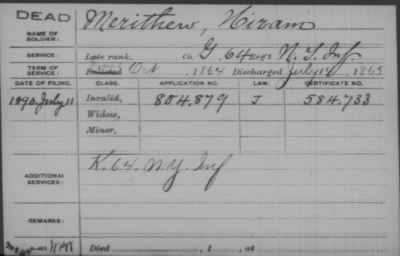 DEAD
NAME OF SOLDIER: Merithew, Hiram
SERVICE: Late rank, Co. G, 64 Reg't N. Y. Inf
TERM OF SERVICE: Enlisted Oct, 1864 Discharged July 14, 1865
DATE OF FILING. CLASS. APPLICATION NO. LAW. CERTIFICATE NO.
1890 July 11 Invalid, 804,879 J 584,733
Widow,
Minor,
ADDITIONAL SERVICES: K. 64. N.Y. Inf
REMARKS:
Died , 1 , at